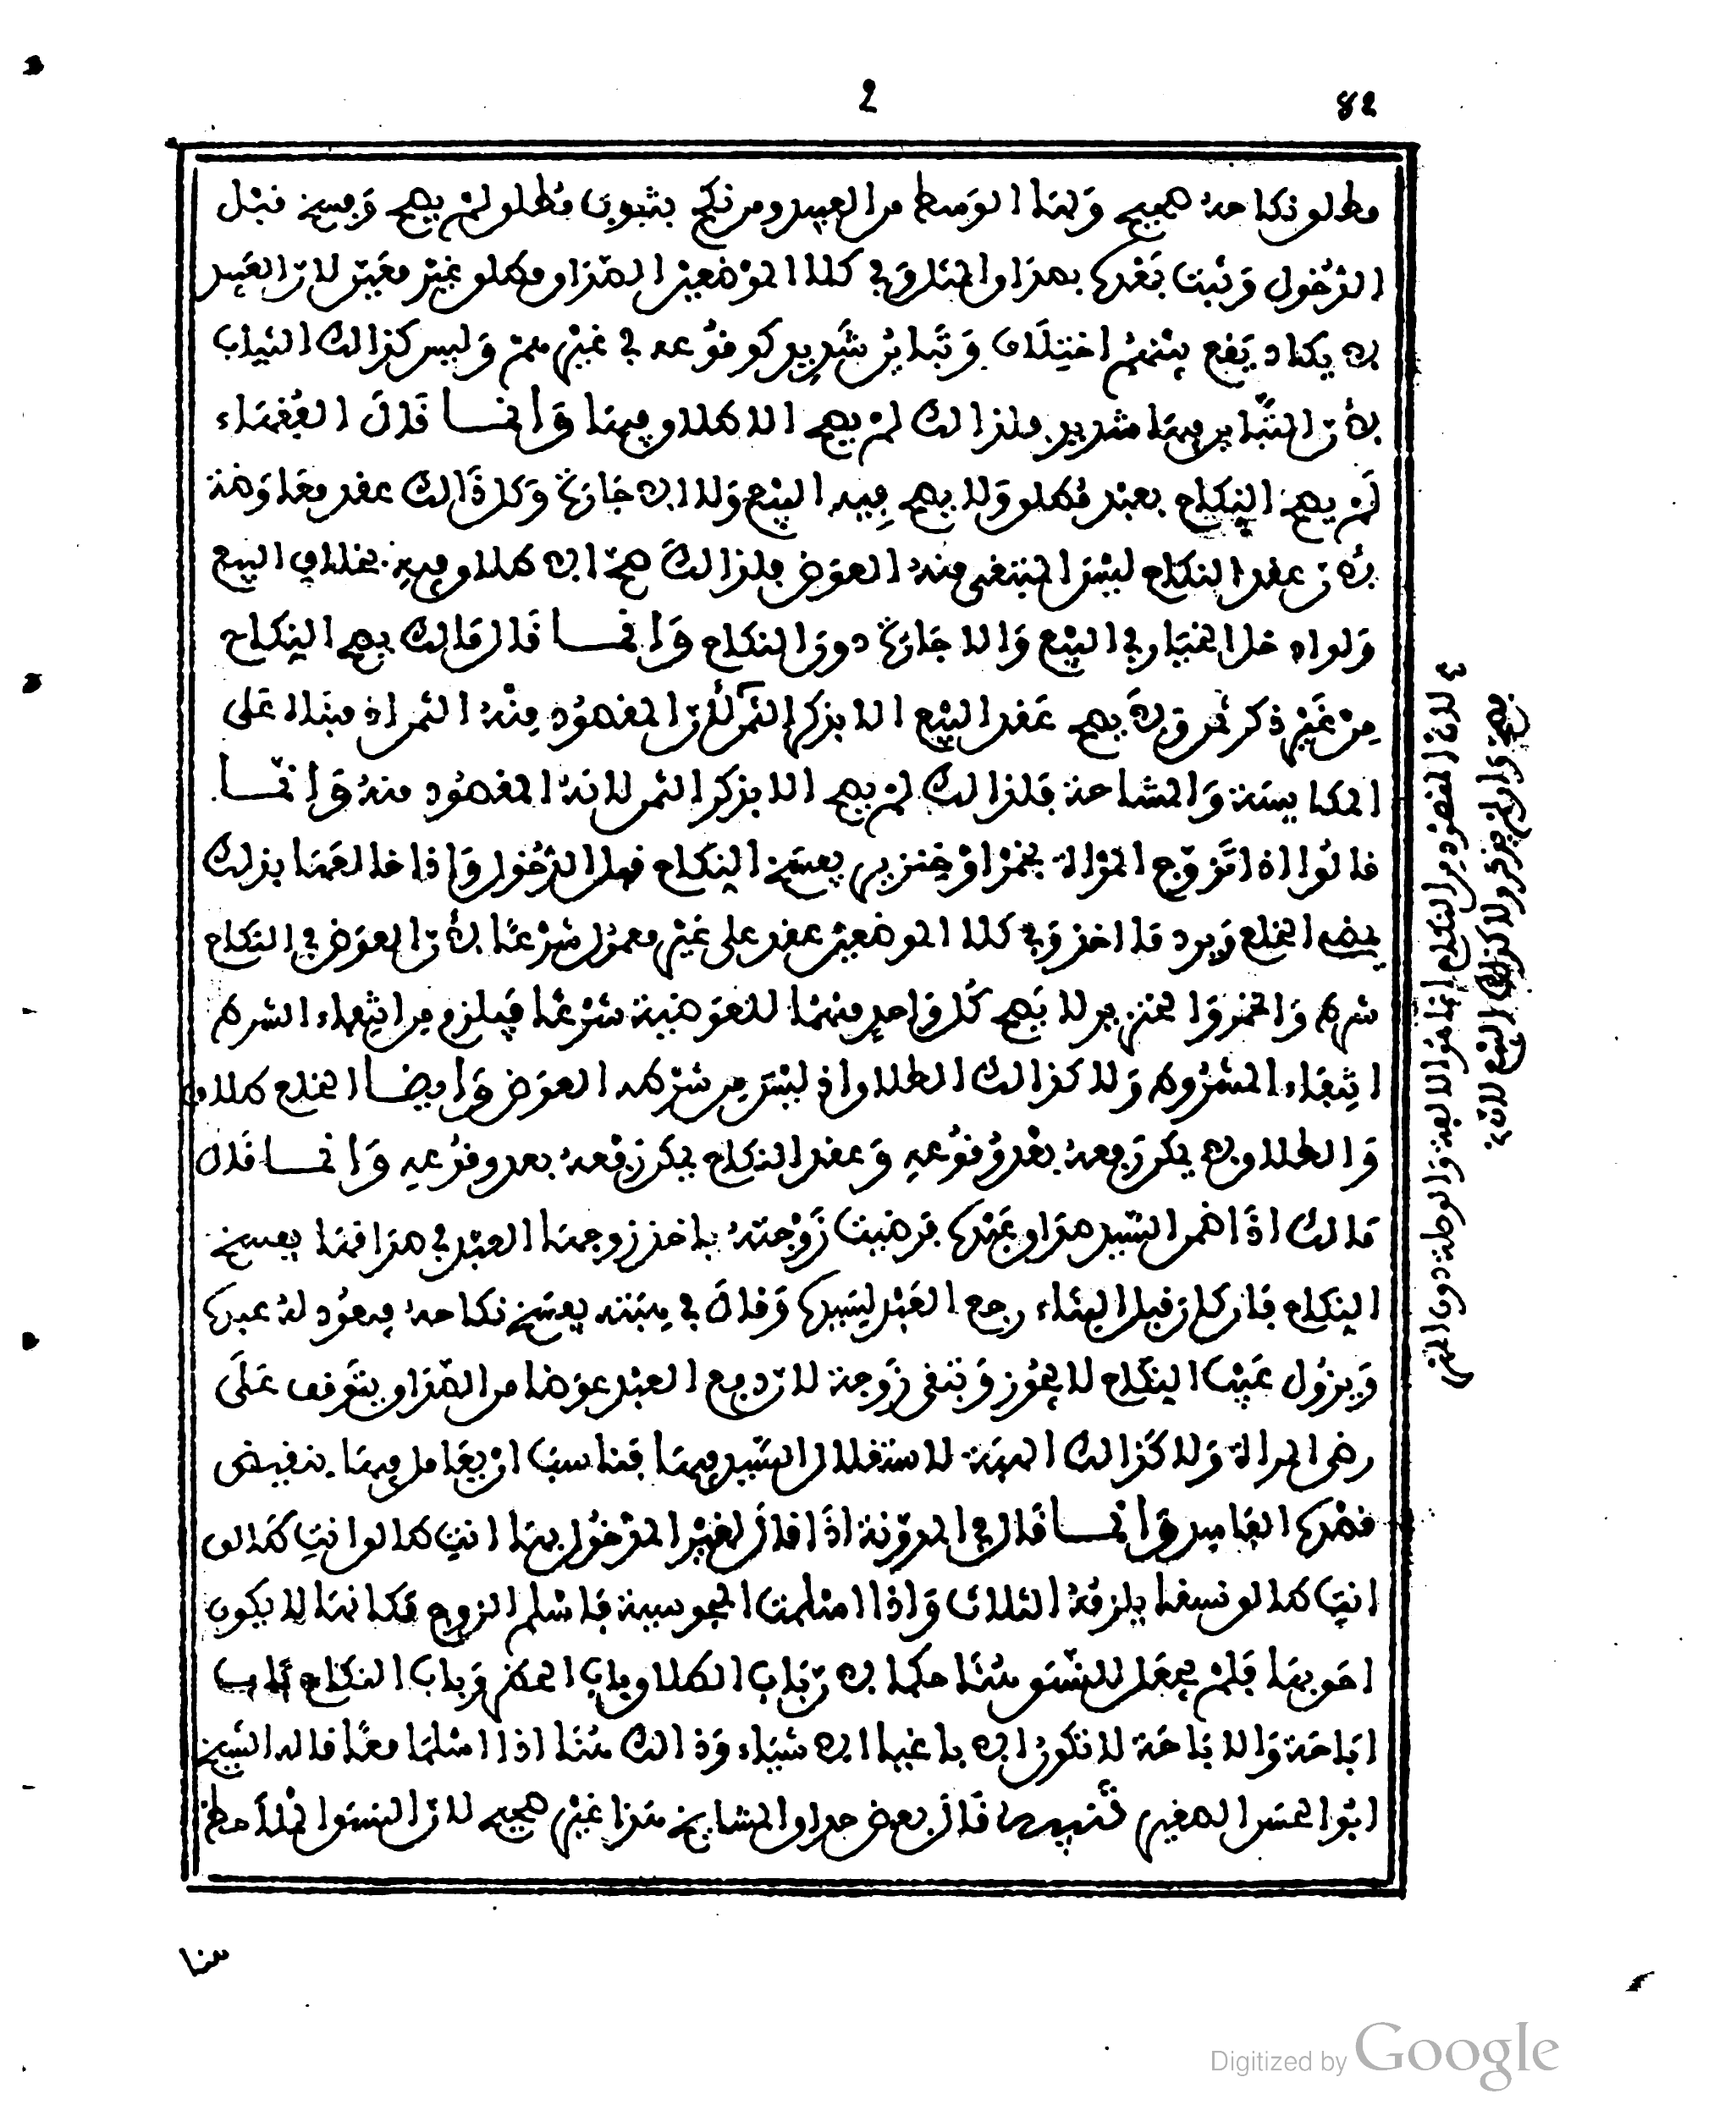 2
82
مطلق نكاحه صحيح ولها الوسط من العبيد ومن نكح بثبوت مطلق لم يصح ويفسخ قبل
الدخول ويثبت بعده بصداق المثل وفي كلا الموضعين الصداق مطلق غير معين لان العبيد
لا يكاد يقع بينهم اختلاف وتباين شديد كوقوعه في غيرهم وليس كذالك الثياب
لأن التباين فيها شديد فلذالك لم يصح الاطلاق فيها وانما قال الفقهاء
لم يصح النكاح بعبد مطلق ولا يصح فيه البيع ولا الاجارة وكل ذالك عقد معاوضة
لأن عقد النكاح ليس المبتغى منه العوض فلذالك صح الاطلاق فيه بخلاف البيع
ولو دخل الخيار في البيع والاجارة دون النكاح وانما قال مالك يصح النكاح
من غير ذكر ثمن ولا يصح عقد البيع الا بذكر الثمن لأن المقصود منه الثمن اذ مبناه على
المكايسة والمشاحة فلذالك لم يصح الا بذكر الثمن لانه المقصود منه وانما
قالوا اذا تزوج المرأة بخمر او خنزير يفسخ النكاح قبل الدخول واذا خالعها بذلك
يمضي الخلع ويرد ما اخذ وفي كلا الموضعين عقد على غير معمول شرعا لأن العوض في النكاح
شرط والخمر والخنزير لا يصح كل واحد منهما للعوضية شرعا فيلزم من انتفاء الشرط
انتفاء المشروط ولا كذالك الطلاق اذ ليس من شرطه العوض وايضا الخلع طلاق
والطلاق لا يمكن رفعه بعد وقوعه وعقد النكاح يمكن رفعه بعد وقوعه وانما قال
مالك اذا ضمن السيد صداق عبده فرضيت زوجته باخذ زوجها العبد في صداقها يفسخ
النكاح فان كان قبل البناء رجع العبد لسيده وقال في هبته يفسخ نكاحه فيعود له عبده
ويزول عيب النكاح لا يجوز وتبقى زوجة لان دفع العبد عوضا من الصداق يتوقف على
رضى المرأة ولا كذالك الهبة لاستقلال السيد فيها فناسب ان يعامل فيها بنقيض
قصده الفاسد وانما قال في المدونة اذا قال لغير المدخول بها انت طالق انت طالق
انت طالق نسقا يلزمه الثلاث واذا اسلمت المجوسية فاسلم الزوج مكانها لا يكون
احق بها فلم يجعل للنسق هنا حكما لأن باب الطلاق باب الحظر وباب النكاح باب
اباحة والاباحة لا تكون الا باغيا الاشياء وذالك هنا اذا اسلما معا قاله الشيخ
ابو الحسن الصغير تنبيه قال بعض حذاق المشايخ هذا غير صحيح لان النسق الملاحظ
هنا
لان المقصود من النكاح انما هو الالفة والوصلة دون الثمن
يصح وان لم يذكر ولا كذالك البيع لانه
Digitized by Google